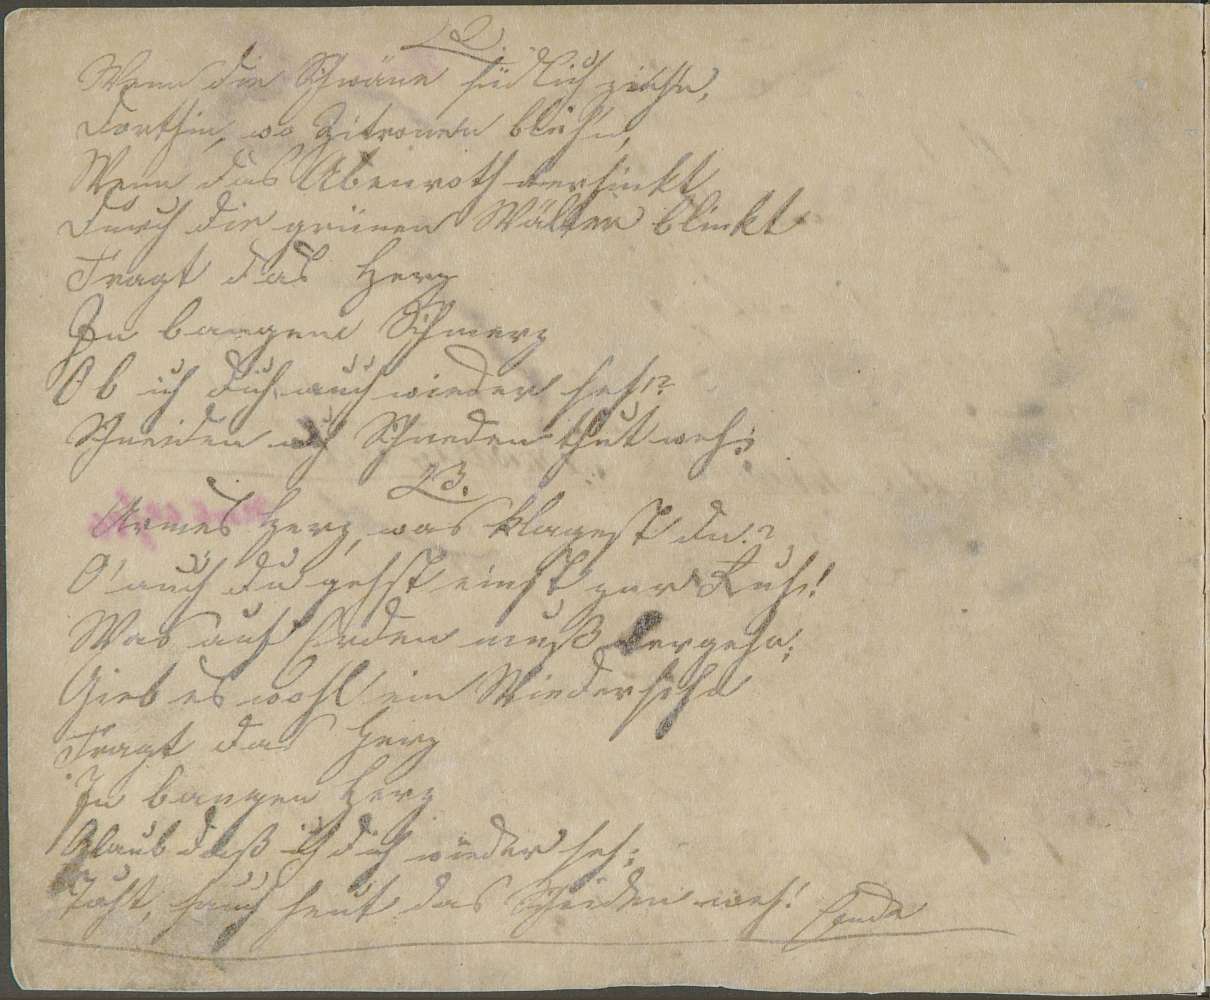 2.
Wenn die Schwäne südlich ziehn,
Dorthin, wo Zitronen blühn,
Wenn das Abenroth versinkt
Durch die grünen Wälter blinkt
Fragt das Herz
In bangem Schmerz
Ob ich dich auch wieder seh!?
Scheiden ach Scheden thut weh!
3.
Armes Herz, was klagest du.?
O! auch du gehst einst zur Ruh!
Was auf Erden muß vergehn;
Gieb es wohl ein Wiedersehn
Fragt das Herz
In bangen Herz
Glaub daß ich dich wieder seh;
Thut auch heut das Scheiden weh!
Ende